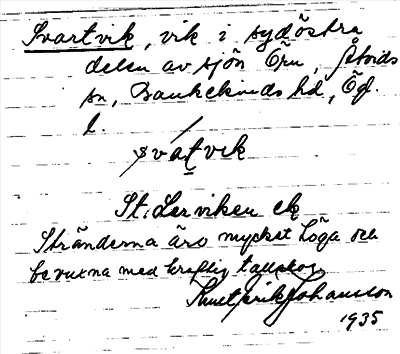 Svartvik, vik i sydöstra
delen av sjön Ören, Åtvids
sn, Bankekinds hd, Ög.
l.
svátvik
St: Lerviken ek
Stränderna äro mycket höga och
bevuxna med kraftig tallskog
Knut Erik Johansson
1935